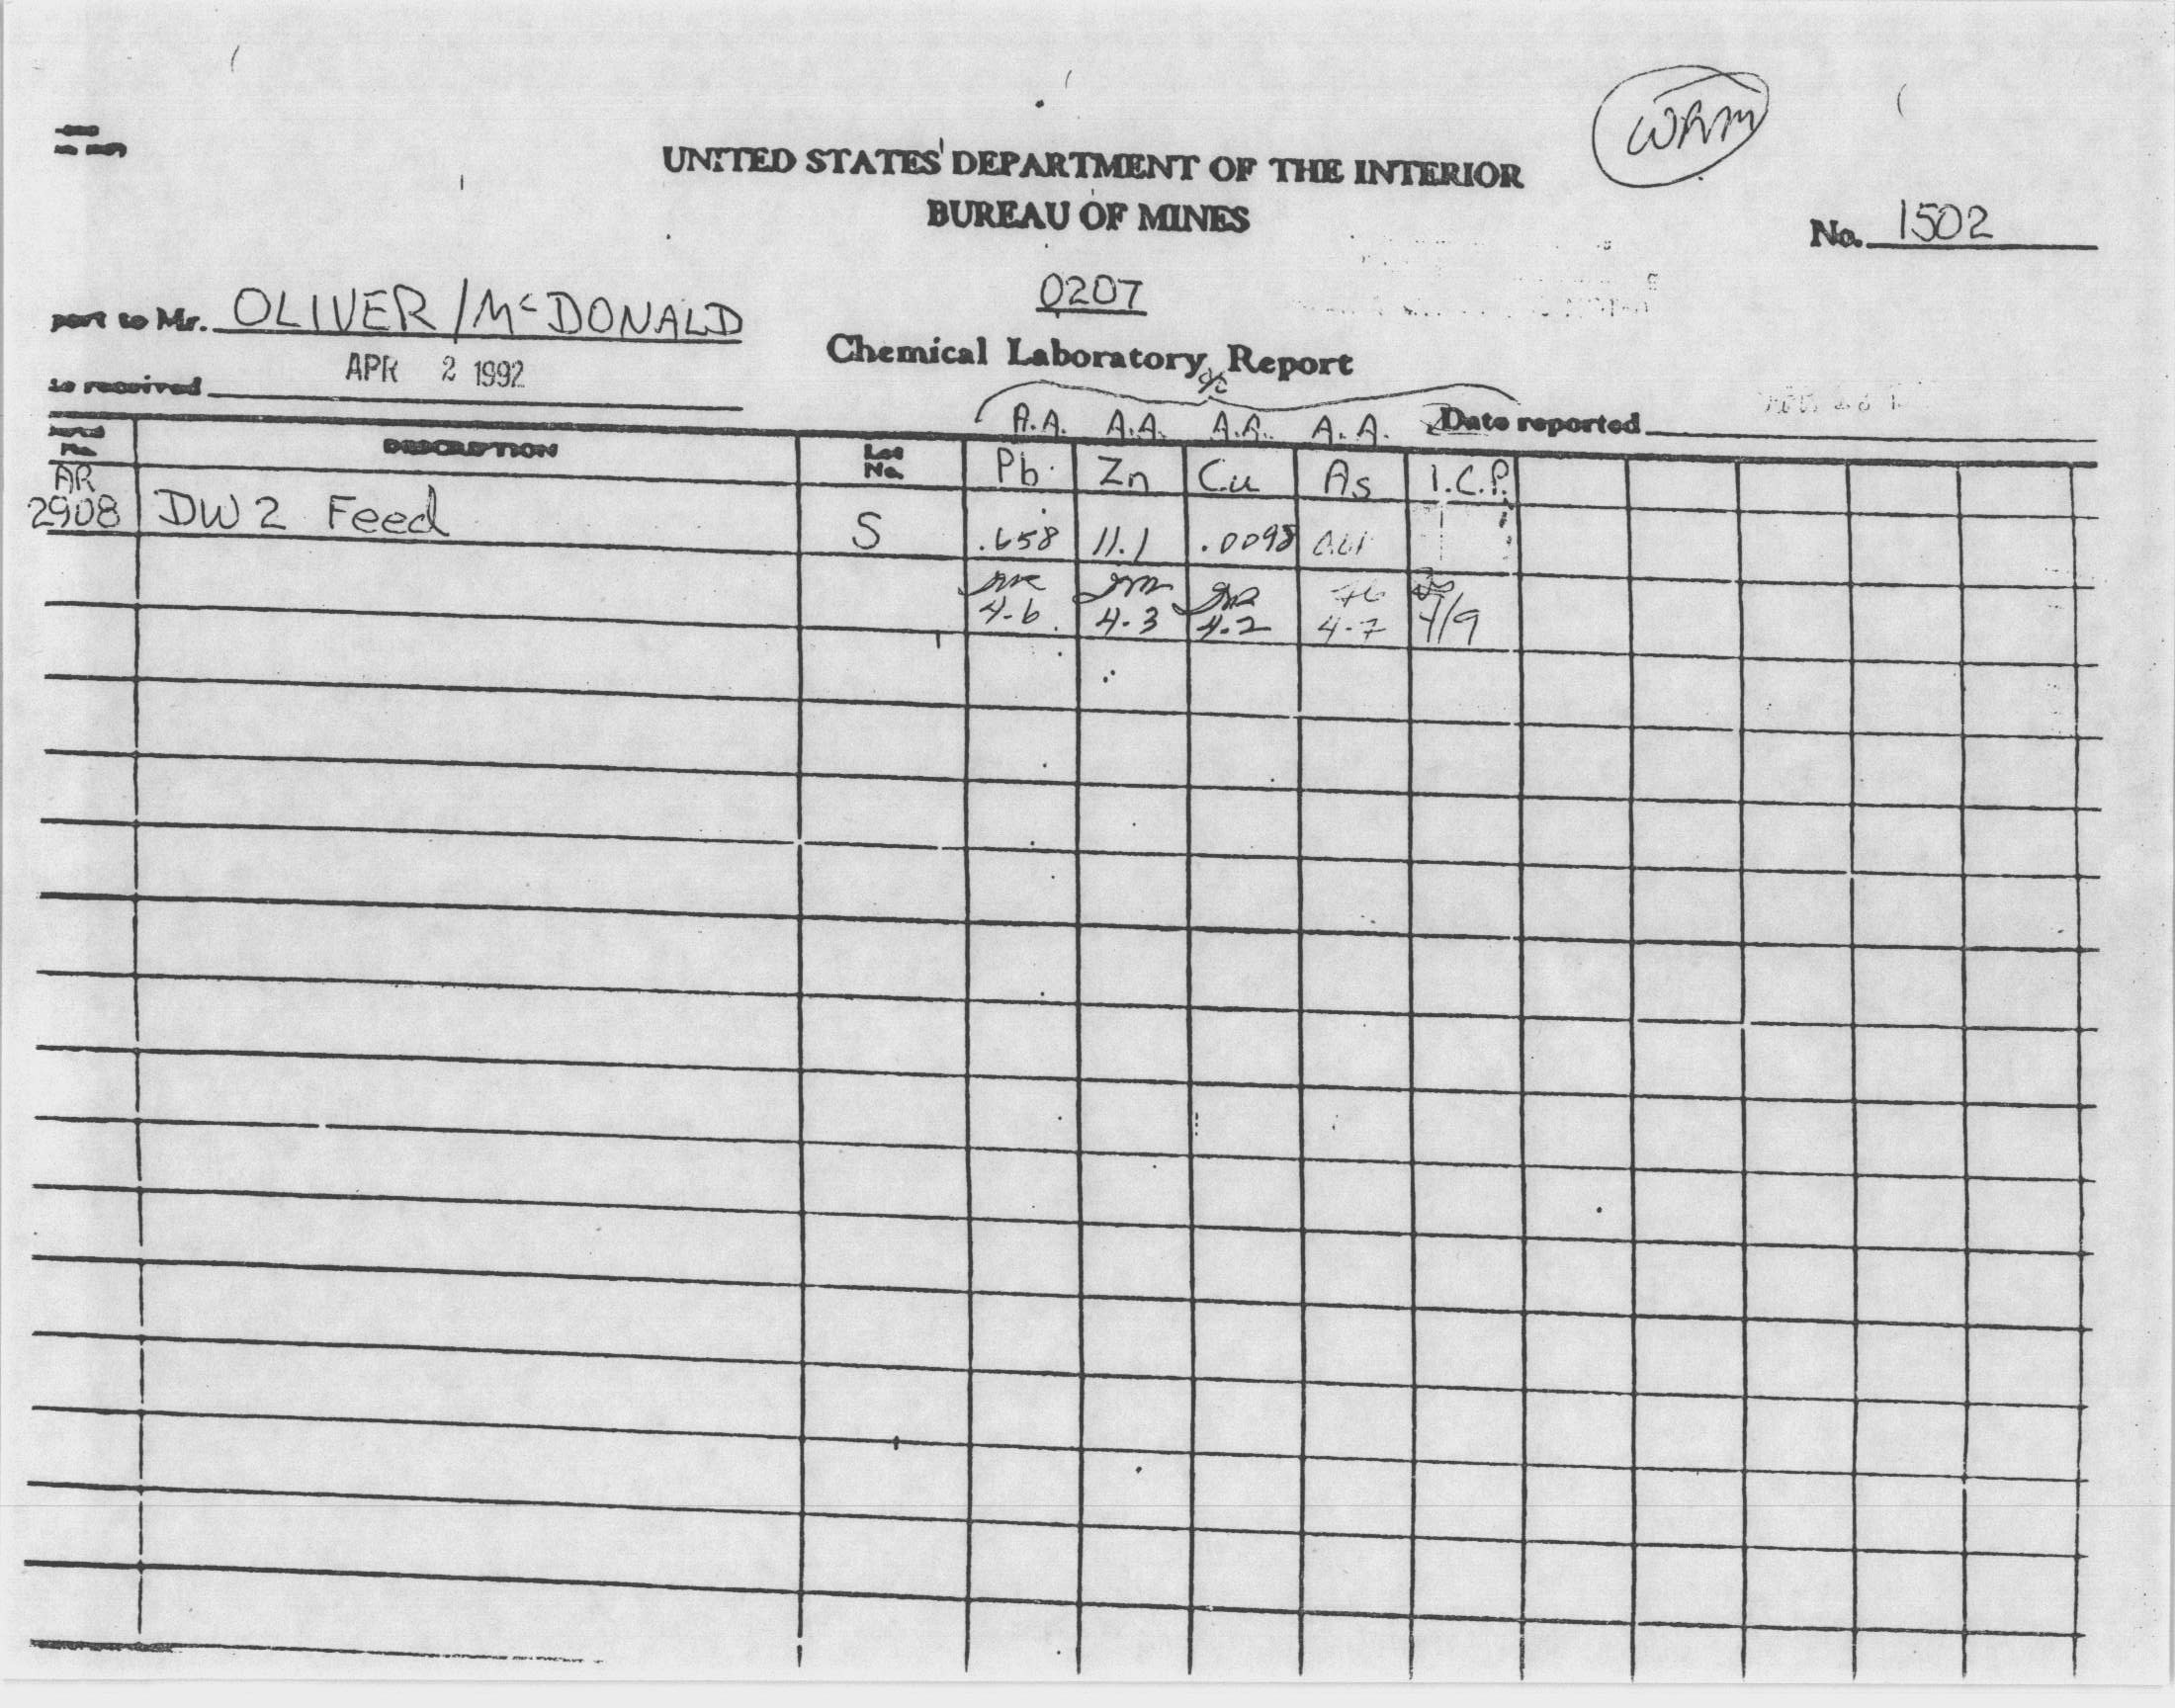 WRM
UNITED STATES DEPARTMENT OF THE INTERIOR
BUREAU OF MINES
No. 1502
0207
port to Mr. OLIVER/McDONALD
Chemical Laboratory Report
APR 2 1992
received
%
A.A. A.A. A.A. A.A. Date reported
No. DESCRIPTION Lot No. Pb Zn Cu As I.C.P.
AR
2908 DW2 Feed S .658 11.1 .0098
4-6 4-3 4-2 4-7 4/9